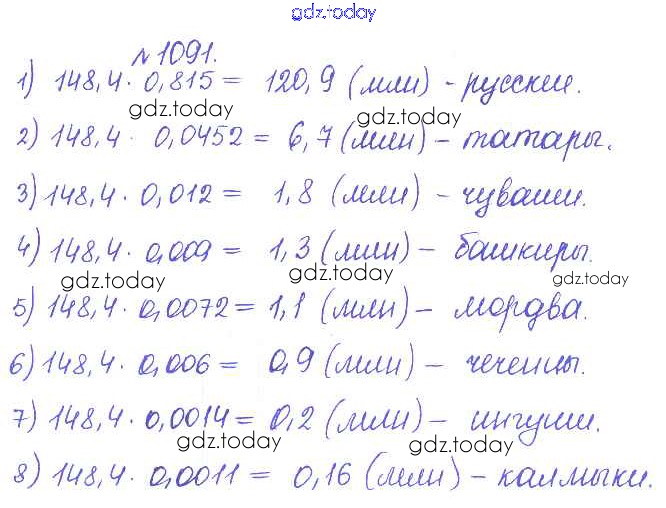 gdz.today
№1091.
1) 148,4 · 0,815 = 120,9 (млн) - русские.
gdz.today gdz.today
2) 148,4 · 0,0452 = 6,7 (млн) - татары.
3) 148,4 · 0,012 = 1,8 (млн) - чуваши.
4) 148,4 · 0,009 = 1,3 (млн) - башкиры.
gdz.today gdz.today gdz.today
5) 148,4 · 0,0072 = 1,1 (млн) - мордва.
6) 148,4 · 0,006 = 0,9 (млн) - чеченцы.
7) 148,4 · 0,0014 = 0,2 (млн) - ингуши.
gdz.today gdz.today
8) 148,4 · 0,0011 = 0,16 (млн) - калмыки.